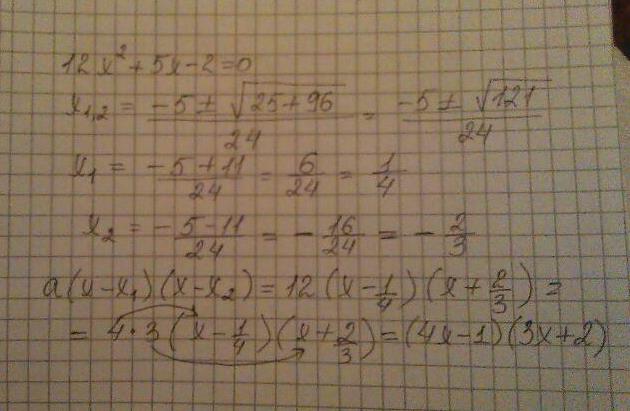 12x² + 5x - 2 = 0
x₁,₂ = (-5 ± √(25+96))/24 = (-5 ± √121)/24
x₁ = (-5+11)/24 = 6/24 = 1/4
x₂ = (-5-11)/24 = -16/24 = -2/3
a(x-x₁)(x-x₂) = 12(x-1/4)(x+2/3) =
= 4·3(x-1/4)(x+2/3) = (4x-1)(3x+2)